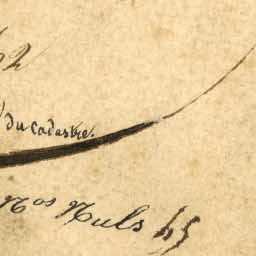 62
du cadastre.
Nos Nuls 45